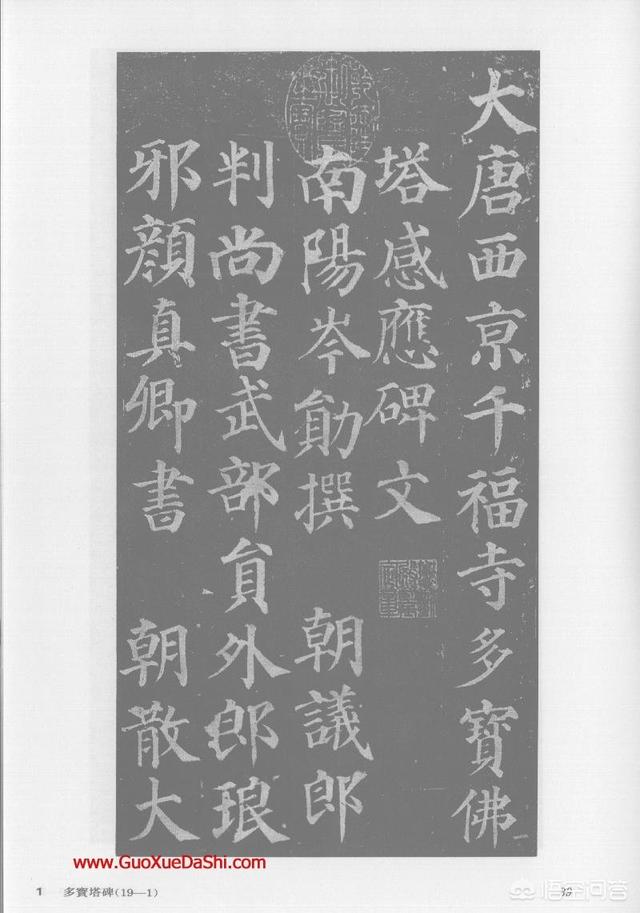 大唐西京千福寺多寶佛
塔感應碑文
南陽岑勛撰 朝議郎
判尚書武部員外郎琅
邪顏真卿書 朝散大
www.GuoXueDaShi.com
1 多寶塔碑(19—1)
39
悟空问答